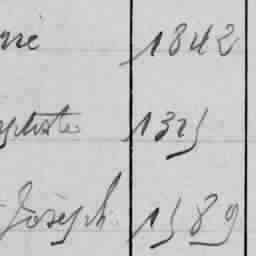 rie 1842
aptiste 1325
Joseph 1589